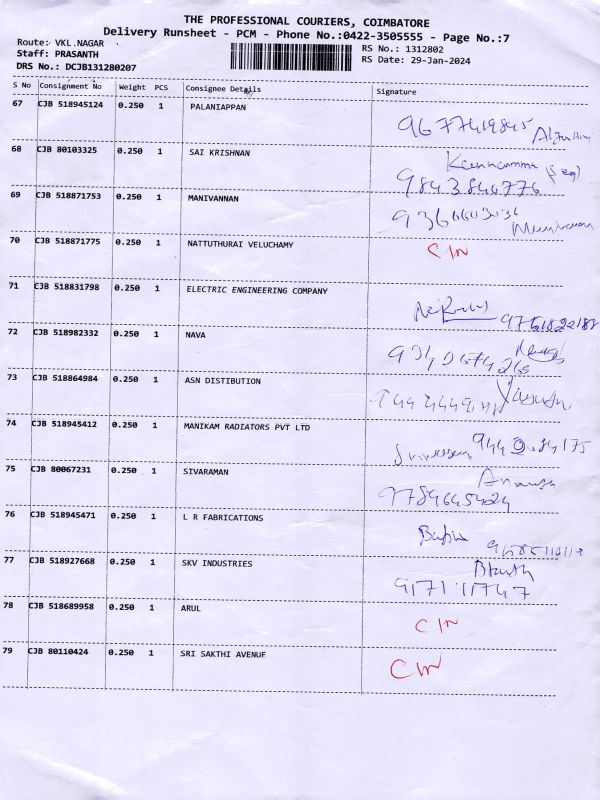 THE PROFESSIONAL COURIERS, COIMBATORE
Delivery Runsheet - PCM - Phone No.:0422-3505555 - Page No.:7
Route: VKL.NAGAR RS No.: 1312802
Staff: PRASANTH RS Date: 29-Jan-2024
DRS No.: DCJB131280207
S No Consignment No Weight PCS Consignee Details Signature
67 CJB 518945124 0.250 1 PALANIAPPAN
9677419845
68 CJB 80103325 0.250 1 SAI KRISHNAN
9843846776
69 CJB 518871753 0.250 1 MANIVANNAN
70 CJB 518871775 0.250 1 NATTUTHURAI VELUCHAMY CIN
71 CJB 518831798 0.250 1 ELECTRIC ENGINEERING COMPANY
72 CJB 518982332 0.250 1 NAVA
73 CJB 518864984 0.250 1 ASN DISTIBUTION
74 CJB 518945412 0.250 1 MANIKAM RADIATORS PVT LTD
75 CJB 80067231 0.250 1 SIVARAMAN
76 CJB 518945471 0.250 1 L R FABRICATIONS
77 CJB 518927668 0.250 1 SKV INDUSTRIES
78 CJB 518689958 0.250 1 ARUL CIN
79 CJB 80110424 0.250 1 SRI SAKTHI AVENUE CIN